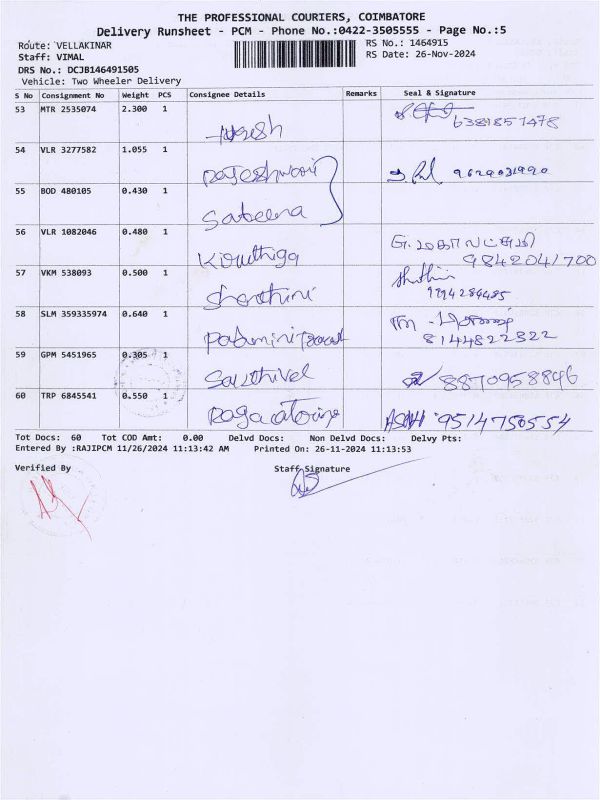 THE PROFESSIONAL COURIERS, COIMBATORE
Delivery Runsheet - PCM - Phone No.:0422-3505555 - Page No.:5
Route: VELLAKINAR
RS No.: 1464915
Staff: VIMAL
RS Date: 26-Nov-2024
DRS No.: DCJB146491505
Vehicle: Two Wheeler Delivery
S No Consignment No Weight PCS Consignee Details Remarks Seal & Signature
53 MTR 2535074 2.300 1 6381851478
54 VLR 3277582 1.055 1 Rajeshwari 9629031990
55 BOD 480105 0.430 1 Sabeena
56 VLR 1082046 0.480 1 Kiruthiga 9842041700
57 VKM 538093 0.500 1 Shanthini
58 SLM 359335974 0.640 1 8144822322
59 GPM 5451965 0.305 1 Sakthivel 8870958896
60 TRP 6845541 0.550 1 9514750554
Tot Docs: 60 Tot COD Amt: 0.00 Delvd Docs: Non Delvd Docs: Delvy Pts:
Entered By :RAJIPCM 11/26/2024 11:13:42 AM Printed On: 26-11-2024 11:13:53
Verified By Staff Signature